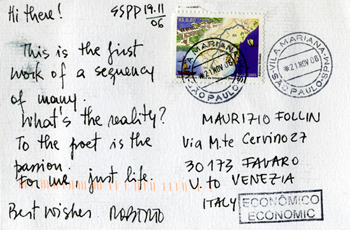 Hi there!
SSPP 19.11
06
This is the first
work of a sequency
of many.
What's the reality?
To the poet is the
passion.
For me, just life.
Best wishes ROBERTO
VILA MARIANA
21 NOV 06
SÃO PAULO
VILA MARIANA
21 NOV 06
SÃO PAULO-SPM
MAURIZIO FOLLIN
Via M.te Cervino 27
30173 FAVARO
V.to VENEZIA
ITALY
ECONÔMICO
ECONOMIC